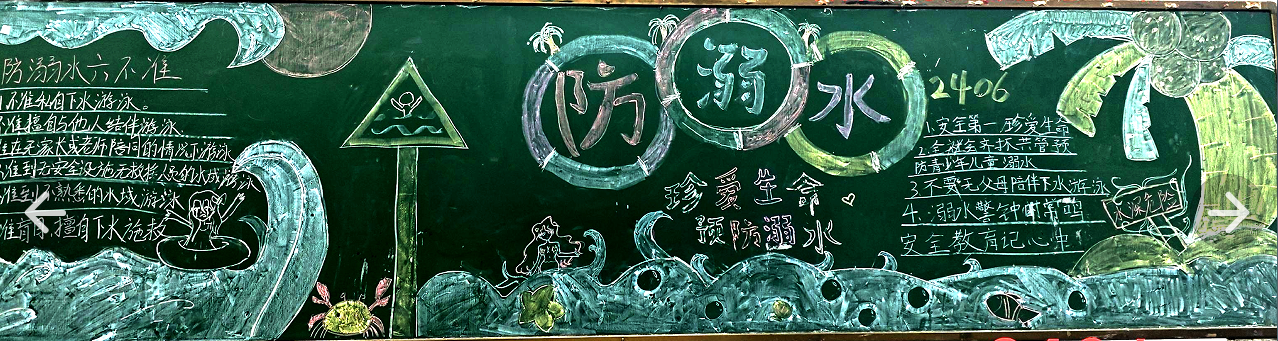 防溺水六不准
1.不准私自下水游泳。
不准擅自与他人结伴游泳.
准在无家长或老师陪同的情况下游泳
准到无安全设施无救援人员的水域游泳
准到不熟悉的水域游泳
准盲目擅自下水施救
防溺水
珍爱生命
预防溺水
2406
1.安全第一 珍爱生命
2.全社会齐抓共管预
防青少年儿童溺水
3.不要无父母陪伴下水游泳
4.溺水警钟时常鸣
安全教育记心中
水深危险